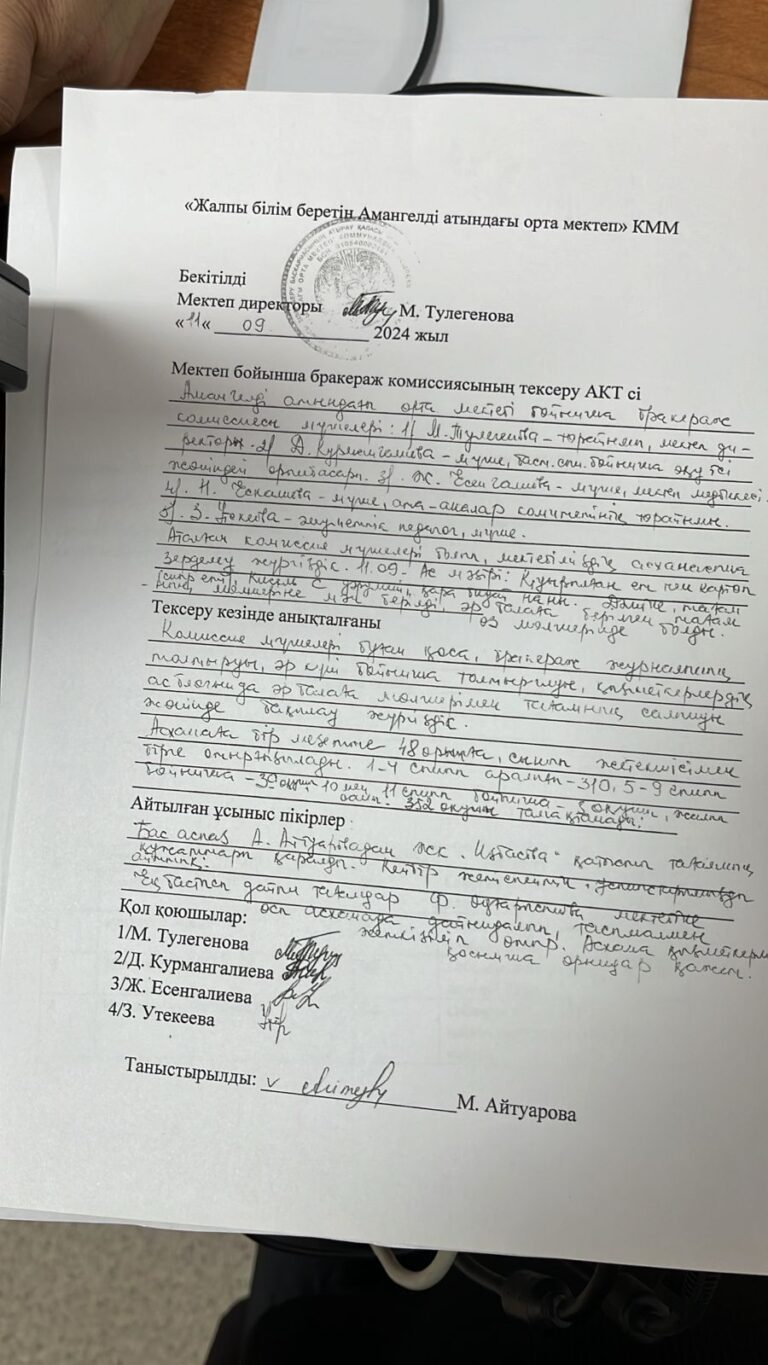 «Жалпы білім беретін Амангелді атындағы орта мектеп» КММ
Бекітілді
Мектеп директоры М. Тулегенова
«11« 09 2024 жыл
Мектеп бойынша бракераж комиссиясының тексеру АКТ сі
Амангелді атындағы орта мектебі бойынша бракераж
комиссиясы мүшелері: 1/ М.Тулегенова – төрайымы, мектеп ди-
ректоры. 2/ Д. Курмангалиева – мүше, баст. сын. бойынша оқу ісі
жөніндегі орынбасары. 3/. Ж. Есенгалиева – мүше, мектеп медбикесі.
4/. Н. Ескалиева – мүше, ата-аналар комитетінің төрайымы.
5/. З. Утекеева – әлуметтік педагог, мүше.
Аталған комиссия мүшелері болып, мектебіміздің асханасына
зерделеу жүргіздік. 11.09 – Ас мәзірі: Қуырылған ет пен картоп
(сиыр еті), Кисель С дәрумині, қара бидай нанн. тағам
мөлшеріне мән берілді, әр балаға берілген тағам
өз мөлшерінде болды.
Тексеру кезінде анықталғаны
Комиссия мүшелері бұған қоса, бракераж журналының
толтыруы, әр күні бойынша толтырылуын, қызметкерлердің
ас блогында әр балаға мөлшерімен тағамның салынуын
жөнінде бақылау жүргіздік.
Асханаға бір мезетте 48 орынға, сынып жетекшісімен
бірге отырғызылады. 1-4 сынып аралығы – 310, 5-9 сынып
бойынша – 39 оқушы, 10 мен 11 сынып бойынша – 3 оқушы, жалпы
саны: 352 оқушы тамақтанады.
Айтылған ұсыныс пікірлер
Бас аспаз А. Айтуаровадан ЖК қатысты тағамның
құжаттары қаралды. Кейбір
айтылды.
дайын тағамдар мектепте
осы асханада дайындалып, тасымалмен
жеткізіліп отыр. Асхана қызметкерлері
қосымша орындар қажет.
Қол қоюшылар:
1/М. Тулегенова
2/Д. Курмангалиева
3/Ж. Есенгалиева
4/З. Утекеева
Таныстырылды: v М. Айтуарова